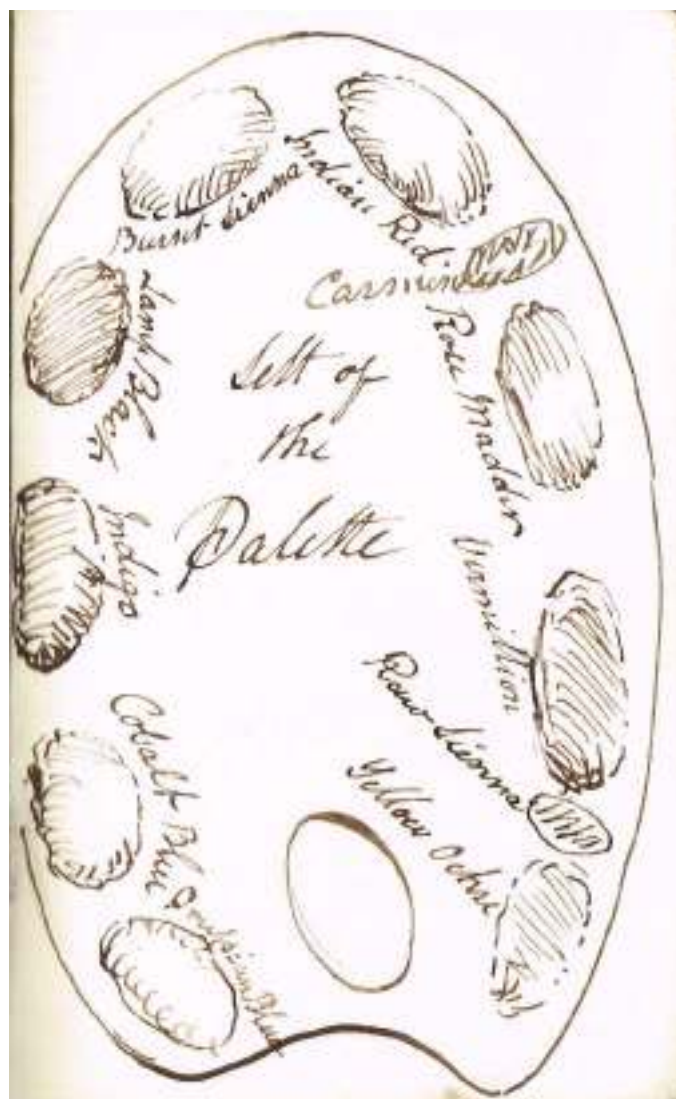 Burnt Sienna
Indian Red
Carmine
Rose Madder
Vermillion
Raw Sienna
Yellow Ochre
Lamp Black
Indigo
Cobalt Blue
Prussian Blue
Sett of
the
Palette